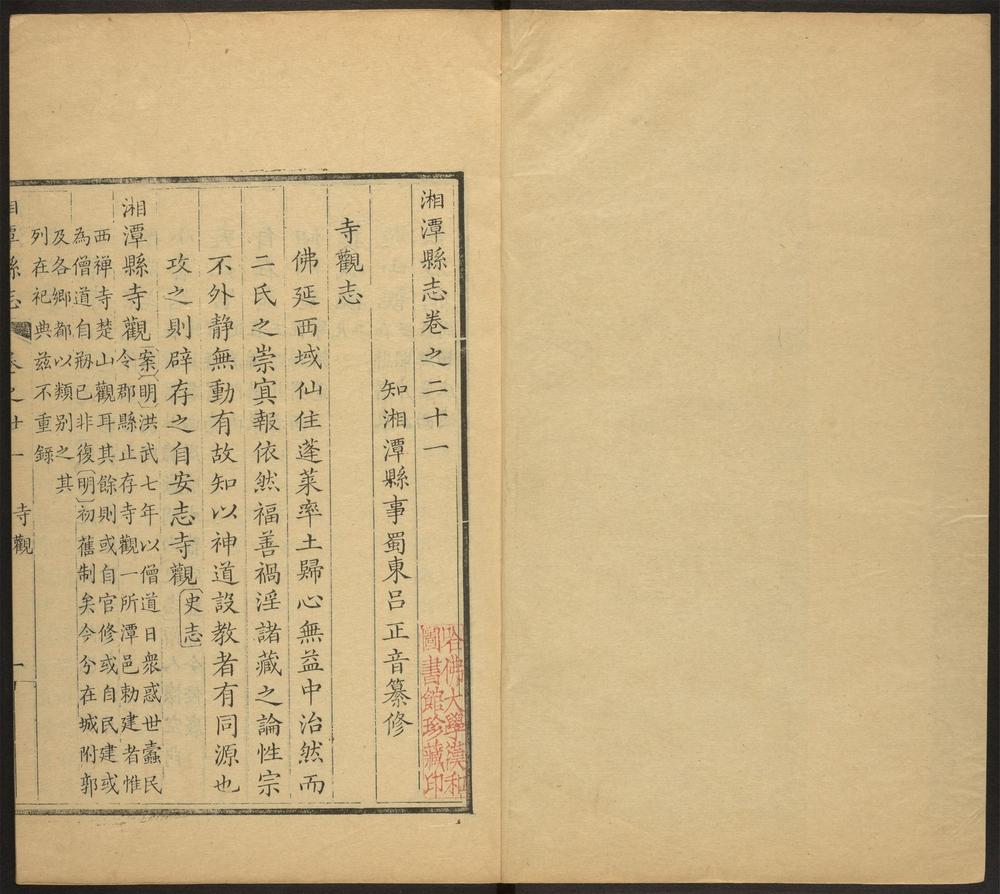 湘潭縣志卷之二十一
哈佛大學漢和
圖書館珍藏印
知湘潭縣事蜀東呂正音纂修
寺觀志
佛延西域仙住蓬萊率土歸心無益中治然而
二氏之崇㝠報依然福善禍淫諸藏之論性宗
不外静無動有故知以神道設教者有同源也
攻之則辟存之自安志寺觀史志
湘潭縣寺觀案明洪武七年以僧道日衆惑世蠹民
令郡縣止存寺觀一所潭邑勅建者惟
西禪寺楚山觀耳其餘則或自官修或自民建或
為僧道自剏已非復明初舊制矣今分在城附郭
及各鄉都以類别之其
列在祀典兹不重錄
湘潭縣志 卷之廿一 寺觀 一